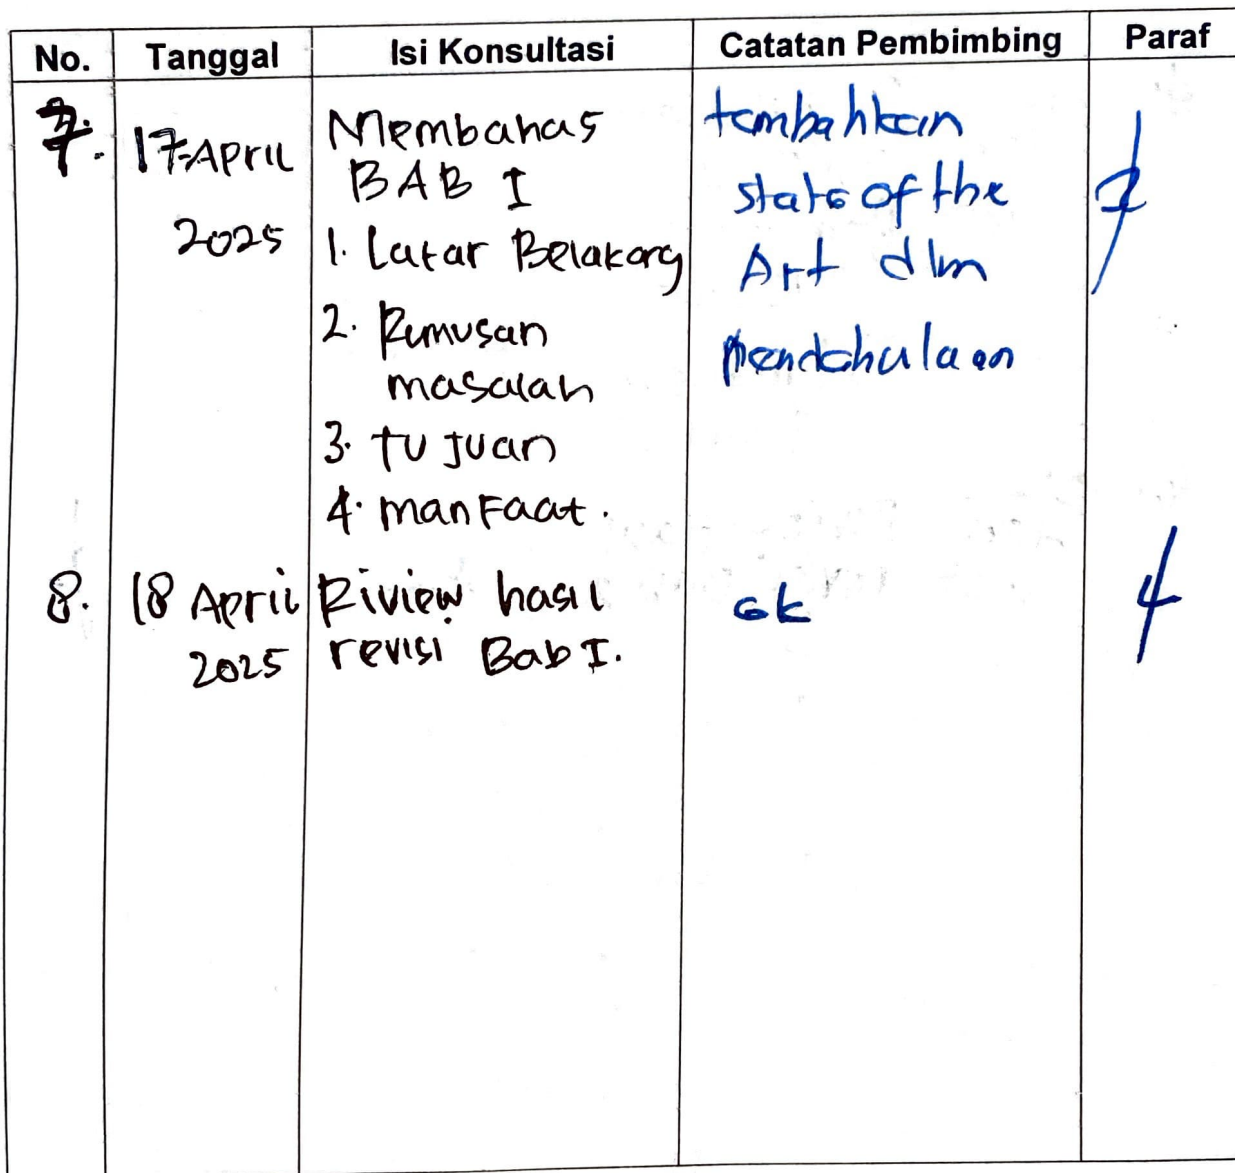 No. Tanggal Isi Konsultasi Catatan Pembimbing Paraf
7. 17 April 2025
Membahas
BAB I
1. Latar Belakang
2. Rumusan
masalah
3. tujuan
4. manfaat.
tambahkan
state of the
Art dlm
pendahuluan
8. 18 April 2025
Riview hasil
revisi Bab I.
ok